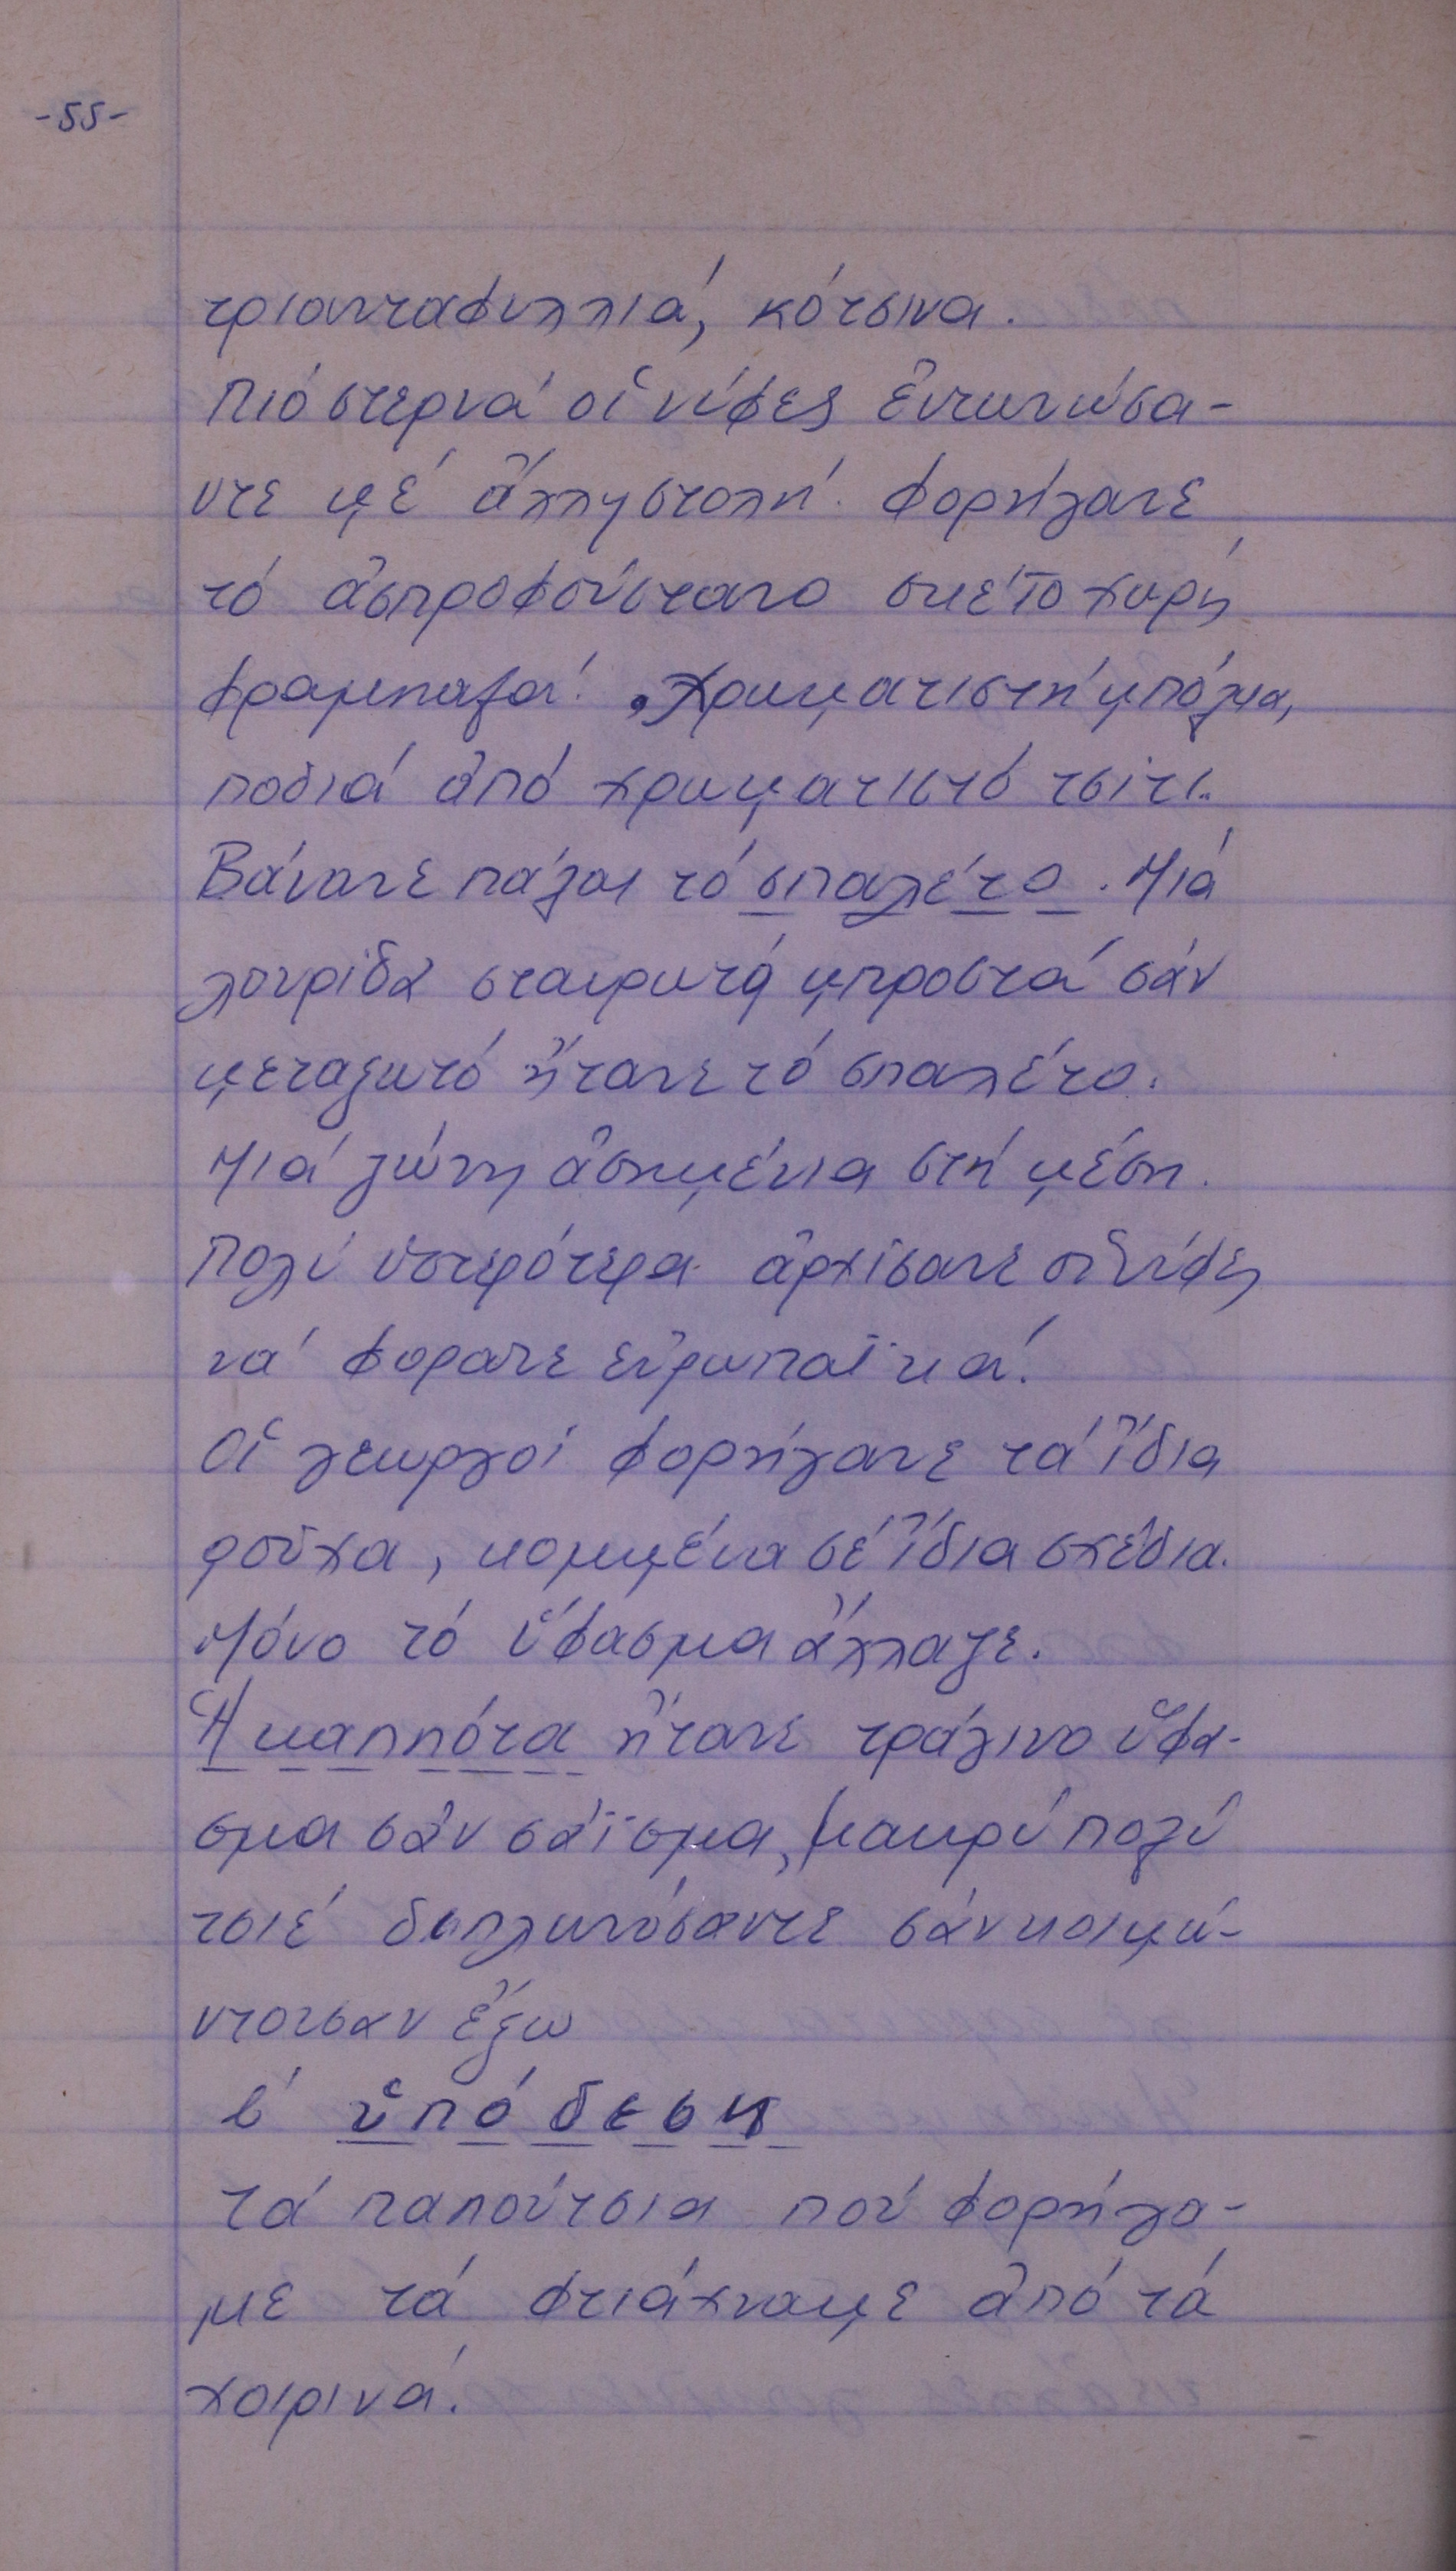 -55-
τριανταφυλλιά, κότσινα.
Πιό στερνά οἱ νύφες ἐντυνώσα-
ντε μέ ἄλλη στολή. Φορήγανε
τό ἀσπροφούστανο σκέτο χωρίς
φραμπαλά. Χρωματιστή μπόλια,
ποδιά ἀπό χρωματιστό τσίτι.
Βάνανε πάλαι τό σπαλέτο. Μιά
λουρίδα σταυρωτή μπροστά σάν
μεταξωτό ἤτανε τό σπαλέτο.
Μιά ζώνη ἀσημένια στή μέση.
Πολύ ὑστερότερα ἀρχίσανε οἱ νύφες
νά φορᾶνε εὐρωπαϊκά.
Οἱ γεωργοί φορήγανε τά ἴδια
ροῦχα, κομμένα σέ ἴδια σχέδια.
Μόνο τό ὕφασμα ἄλλαζε.
Ἡ καππότα ἤτανε τράγινο ὕφα-
σμα σάν σάϊσμα, μακρύ πολύ
τσιέ διπλωνόσαντε σάν κοιμώ-
ντουσαν ἔξω
β' ὑπόδεση
τά παπούτσια πού φορήγα-
με τά φτιάχναμε ἀπό τά
χοιρινά.